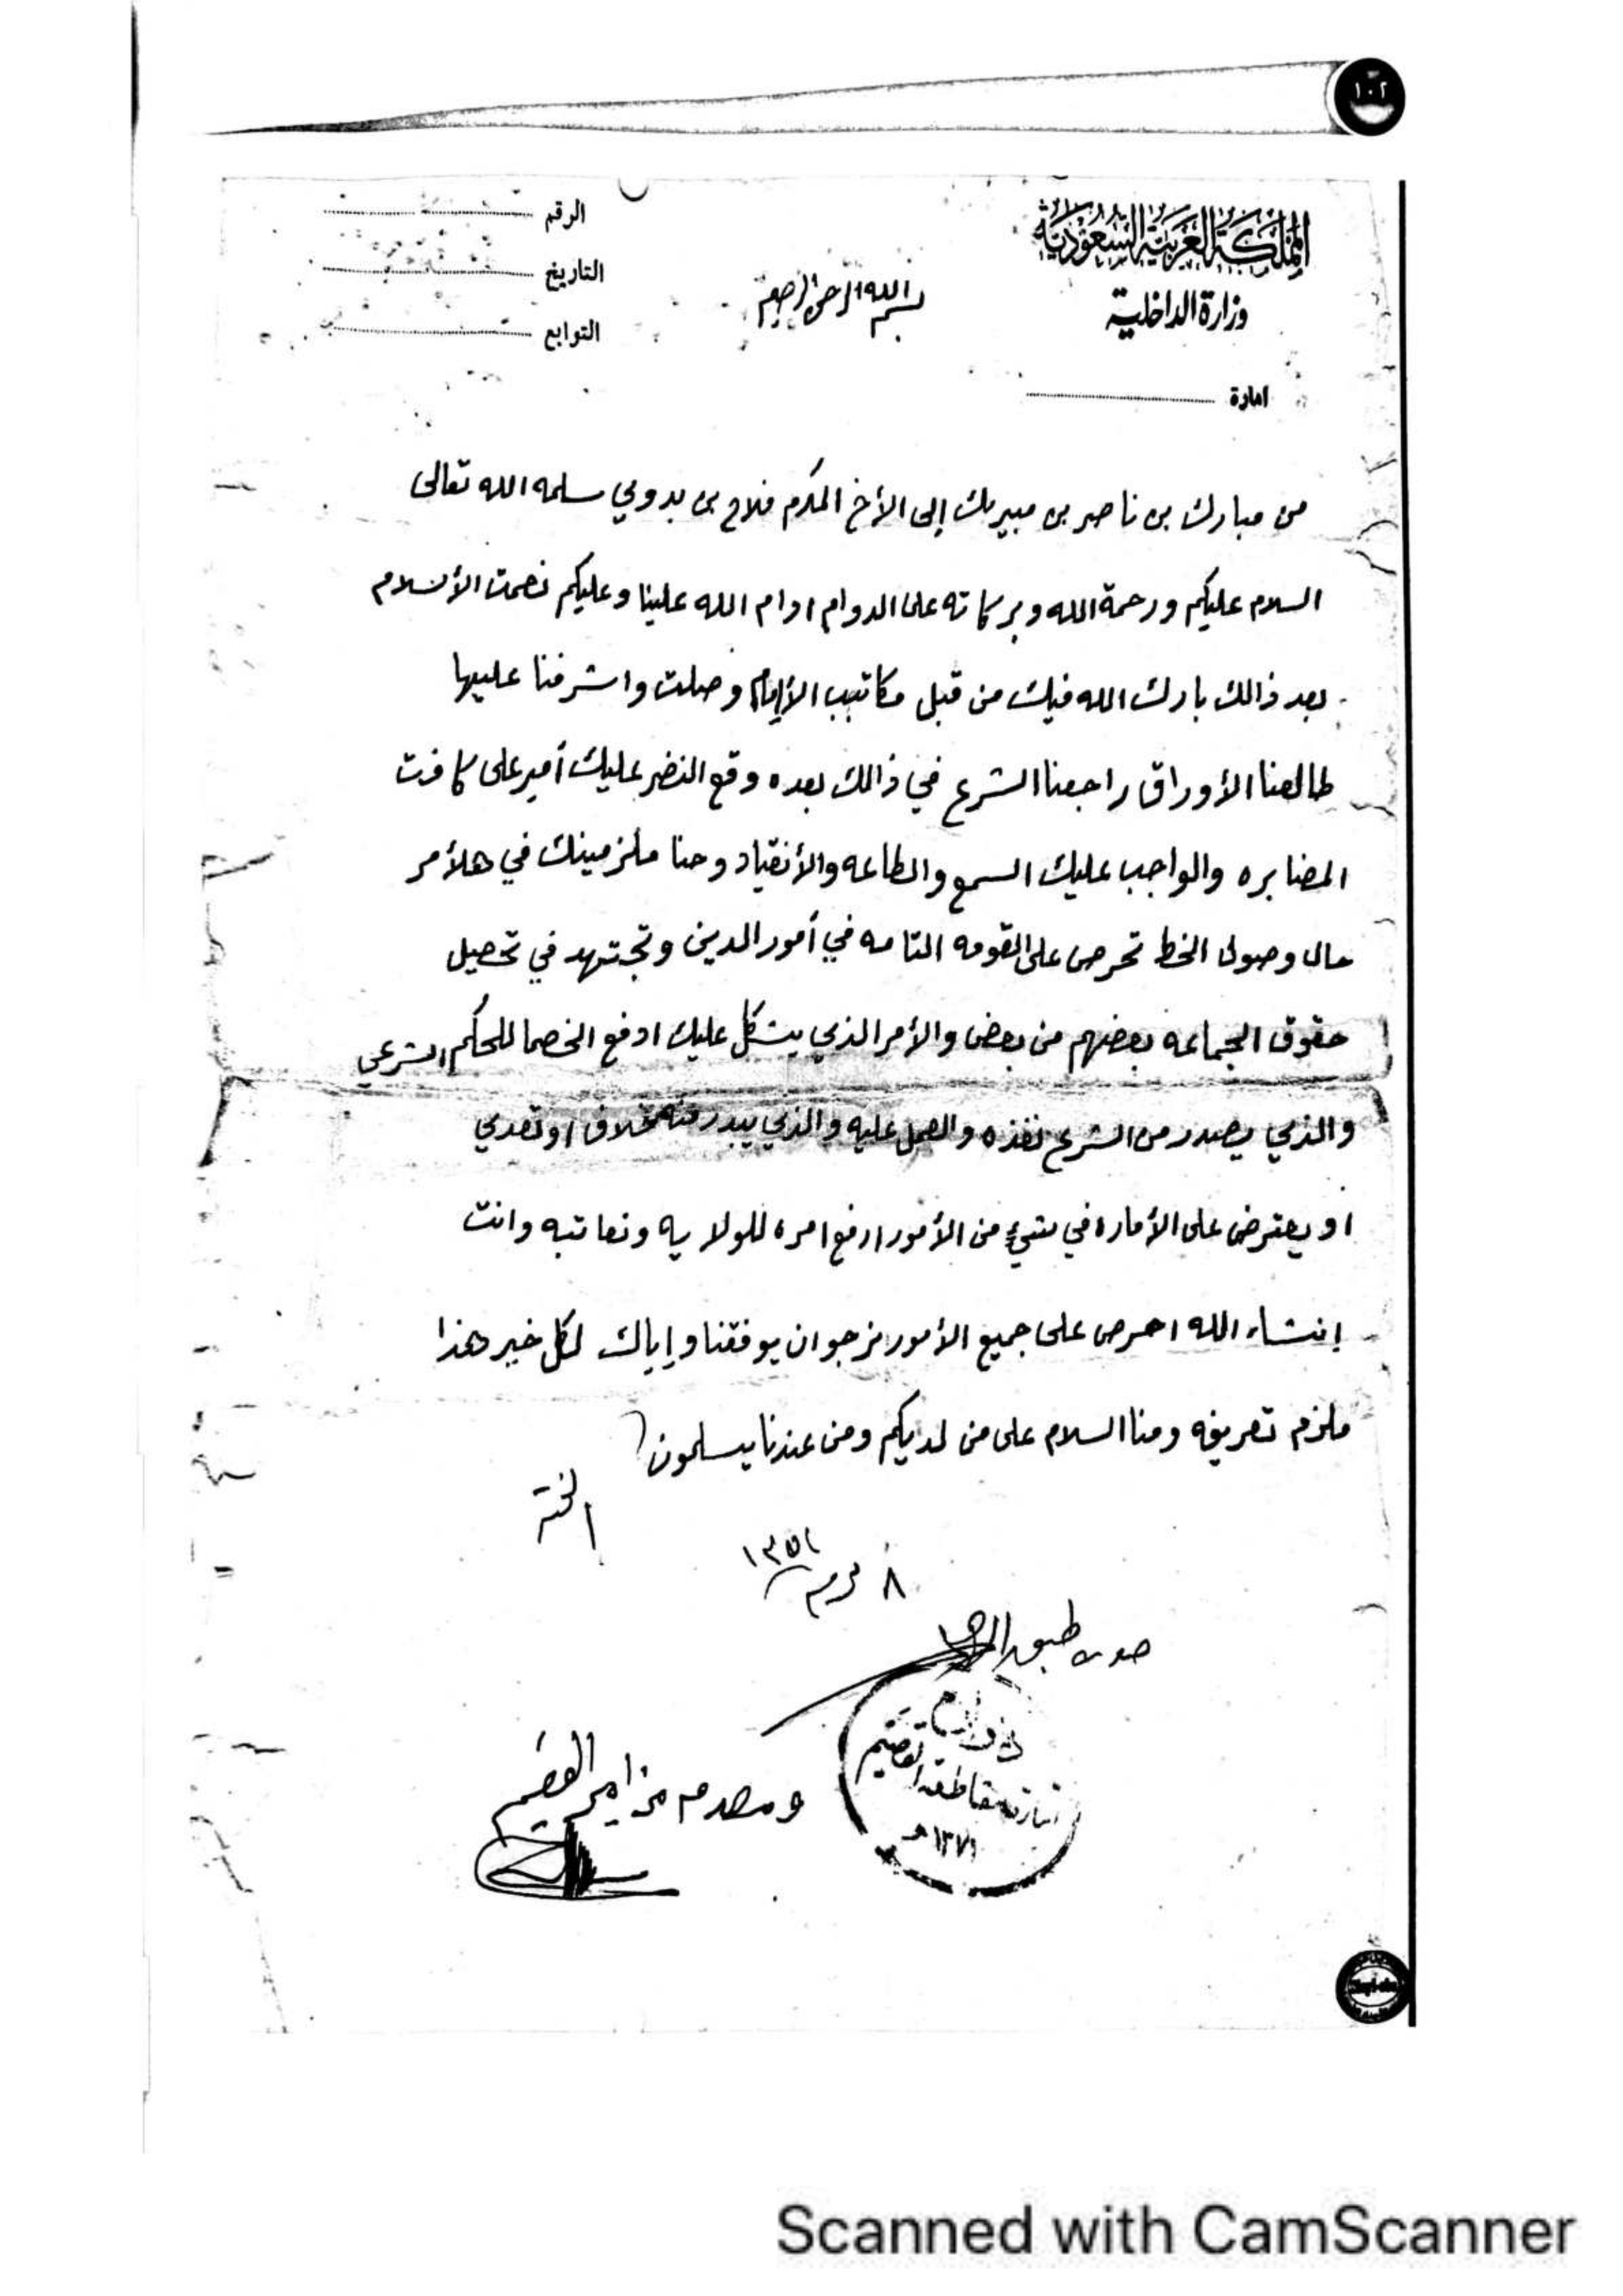 ١٠٢
المملكة العربية السعودية
وزارة الداخلية
امارة
بسم الله الرحمن الرحيم
الرقم
التاريخ
التوابع
من مبارك بن ناصر بن مبيريك إلى الأخ المكرم فلاح بن بدوي سلمه الله تعالى
السلام عليكم ورحمة الله وبركاته على الدوام ادام الله علينا وعليكم نعمت الأسلام
بعد ذالك بارك الله فيك من قبل مكاتيب الأيام وصلت واشرفنا عليها
طالعنا الأوراق راجعنا الشرع في ذالك بعده وقع النضر عليك أمير على كافت
المضابره والواجب عليك السمع والطاعه والأنقياد وحنا ملزمينك في هلأمر
حال وصول الخط تحرص على القومه التامه في أمور الدين وتجتهد في تحصيل
حقوق الجماعه بعضهم من بعض والأمر الذي يشكل عليك ادفع الخصما للحكم الشرعي
والذي يصدر من الشرع نفذه والعمل عليه والذي يبدر منه خلاف او تعدي
او يعترض على الأماره في شيء من الأمور ارفع امره للولايه ونعاتبه وانت
إنشاء الله احرص على جميع الأمور نرجوا ان يوفقنا وإياك لكل خير هذا
ملزم تعريفه ومنا السلام على من لديكم ومن عندنا يسلمون
الختم
٨ محرم ١٣٥٢
صورة طبق الأصل
امارة مقاطعة القصيم
١٣٧١ هـ
ومصدقه من امير القصيم
Scanned with CamScanner